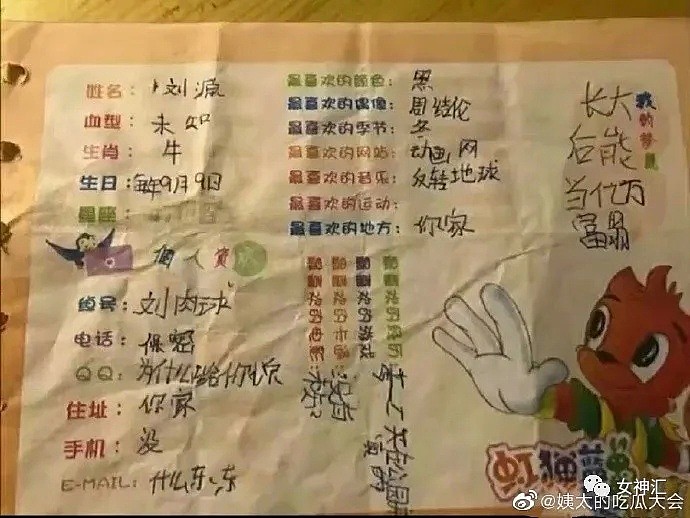 姓名：刘源
血型：未知
生肖：牛
生日：每年9月9日
星座：
个人资
绰号：刘肉球
电话：保密
QQ：为什么
住址：你家
手机：没
E-MAIL：什么东东
最喜欢的颜色：黑
最喜欢的偶像：周结伦
最喜欢的季节：冬
最喜欢的网站：动画网
最喜欢的音乐：反转地球
最喜欢的运动：
最喜欢的地方：你家
最喜欢的
最喜欢的游戏
最喜欢的卡通：没有
最喜欢的电影：
我的梦想
长大
后能
当亿万
富翁
虹猫蓝兔
女神汇
@姨太的吃瓜大会